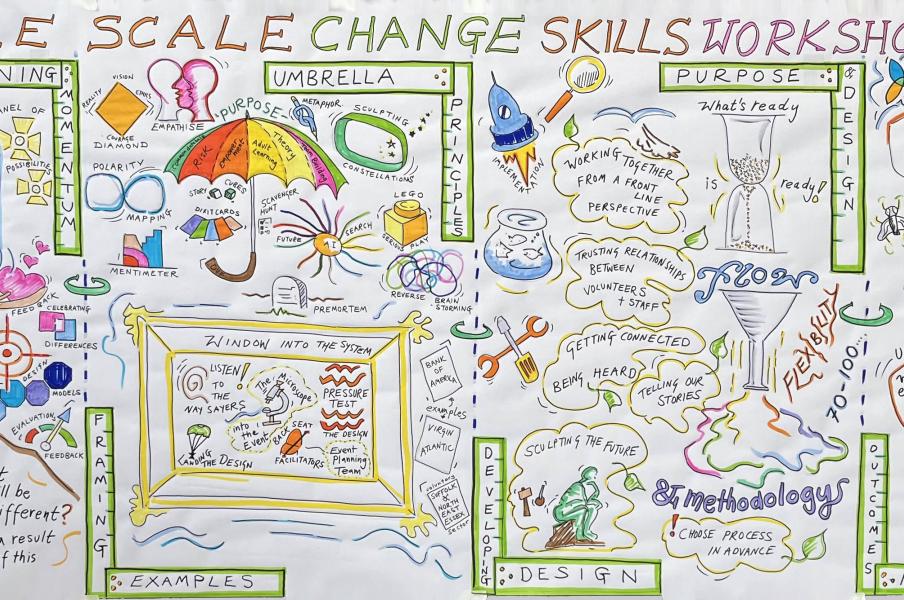 E SCALE CHANGE SKILLS WORKSHO
NING
MOMENTUM
ANEL OF
POSSIBILITIES
FEED BACK
CELEBRATING
DIFFERENCES
DESIGN
MODELS
EVALUATING
FEEDBACK
ll be
ifferent?
a result
f this
VISION
REALITY
ETHICS
COURAGE
DIAMOND
EMPATHISE
POLARITY
MAPPING
MENTIMETER
UMBRELLA
PRINCIPLES
PURPOSE
Risk
Adult Learning
Theory
METAPHOR
SCULPTING
CONSTELLATIONS
STORY CUBES
DIXIT CARDS
SCAVENGER
HUNT
FUTURE
AI
SEARCH
LEGO
DESIGN
PLAY
REVERSE BRAIN
STORMING
PREMORTEM
WINDOW INTO THE SYSTEM
LISTEN!
TO
THE
NAY SAYERS
The Microscope
into the
Event
PRESSURE
TEST
THE DESIGN
LANDING THE DESIGN
BACK SEAT
FACILITATORS
Event
Planning
Team
BANK
OF
AMERICA
examples
VIRGIN
ATLANTIC
voluntary
SUFFOLK
&
NORTH
EAST
ESSEX
sector
FRAMING
EXAMPLES
PURPOSE
& DESIGN
IMPLEMENTATION
WORKING TOGETHER
FROM A FRONT
LINE
PERSPECTIVE
TRUSTING RELATIONSHIPS
BETWEEN
VOLUNTEERS
+ STAFF
GETTING CONNECTED
BEING HEARD
TELLING OUR
STORIES
What's ready
is ready!
flow
FLEXIBILITY
70-100...
SCULPTING THE FUTURE
& methodology
! CHOOSE PROCESS
IN ADVANCE
DEVELOPING
DESIGN
OUTCOMES